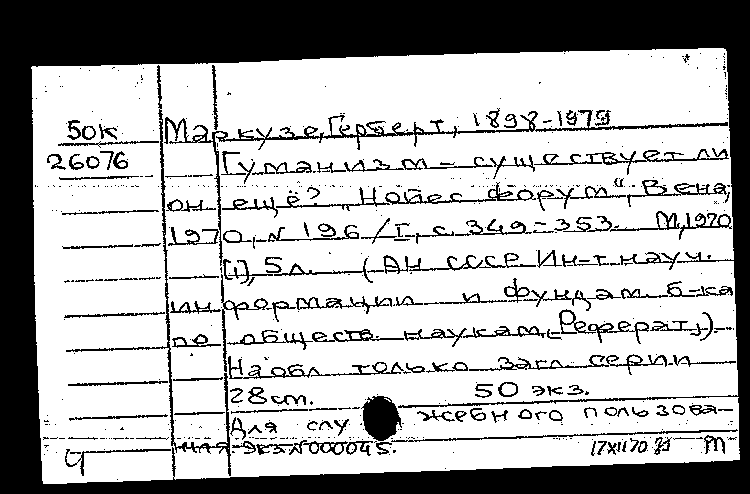 50К Маркузе, Герберт, 1898-1979
26076 Гуманизм - существует ли
он ещё? „Нойес форум“, Вена,
1970, N 196/I, с. 349-353. М, 1970
[1], 5л. (АН СССР Ин-т науч.
информации и фундам. б-ка
по обществ. наукам. Реферат.)
На обл. только загл. серии
28 cm. 50 экз.
Для служебного пользова-
ния-экз N000045.
Ч 17XII70 М